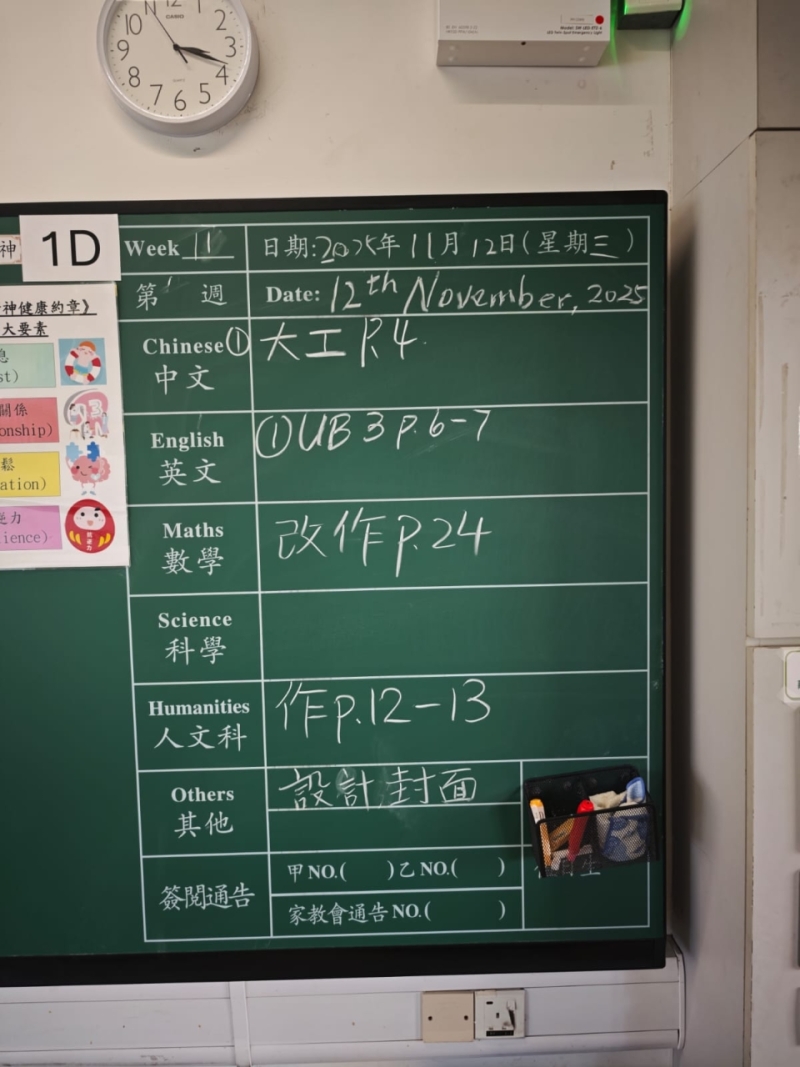 12 2 3 4 5 6 7 8 9 10
CASIO
QUARTZ
神
1D
Week 11
日期:2025年11月12日(星期三)
第11週
Date: 12th November, 2025
神健康約章》
大要素
st)
關係
onship)
鬆
ation)
力
ience)
Chinese ① 大工 P.4
中文
English ① UB 3 p.6-7
英文
Maths 改作 p.24
數學
Science
科學
Humanities 作p.12-13
人文科
Others 設計封面
其他
簽閱通告
甲NO.( )乙NO.( )
家教會通告NO.( )
生